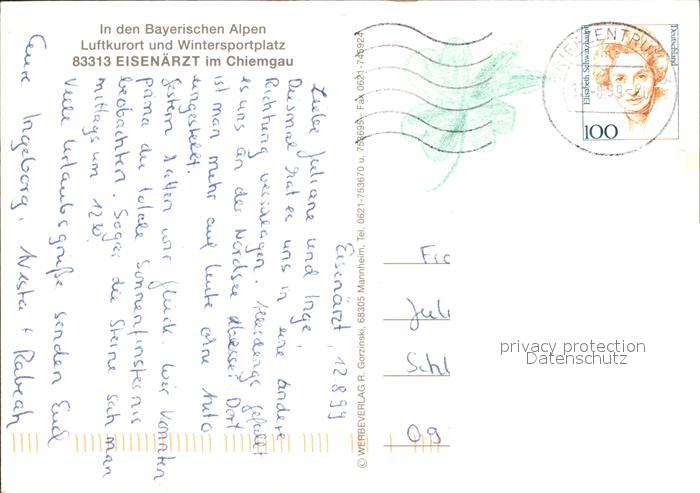 In den Bayerischen Alpen
Luftkurort und Wintersportplatz
83313 EISENÄRZT im Chiemgau
Eisenärzt, 12.8.99
Liebe Juliane und Inge,
Diesmal hat es uns in eine andere
Richtung verschlagen. Allerdings gefällt
es uns an der Nordsee besser! Dort
ist man mehr auf Leute ohne Auto
eingestellt.
Gestern hatten wir Glück. Wir konnten
prima die totale Sonnenfinsternis
beobachten. Sogar die Sterne sah man
mittags um 12³⁰.
Viele Urlaubsgrüße senden Euch
Eure Ingeborg, Nesta + Rabeah
© WERBEVERLAG R. Gorzinski, 68305 Mannheim, Tel. 0621-753670 u. 753695 · Fax 0621-745924
BRIEFZENTRUM
8.99-20
Elisabeth Schwarzhaupt
Deutschland
100
Jul
Schl
privacy protection
Datenschutz